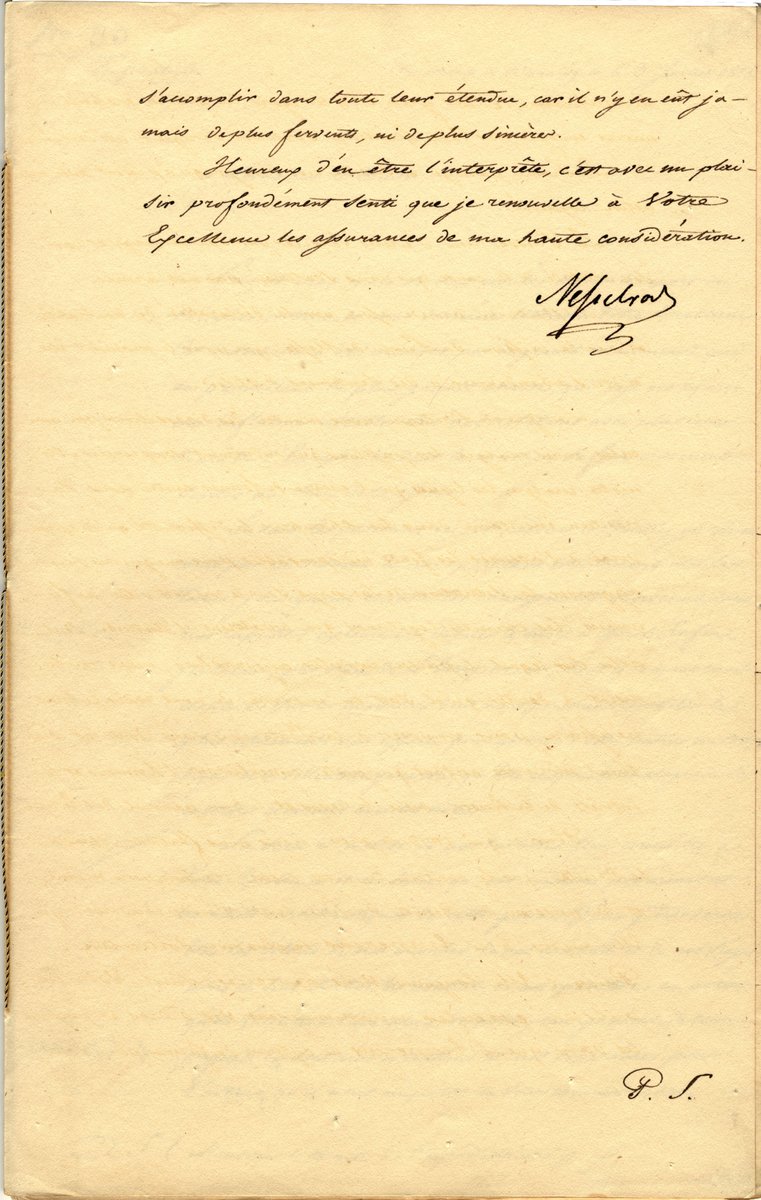 s'accomplir dans toute leur étendue, car il n'y en eût ja-
mais de plus fervents, ni de plus sincères.
Heureux d'en être l'interprête, c'est avec un plai-
sir profondément senti que je renouvelle à Votre
Excellence les assurances de ma haute considération.
Nesselrode
P. S.